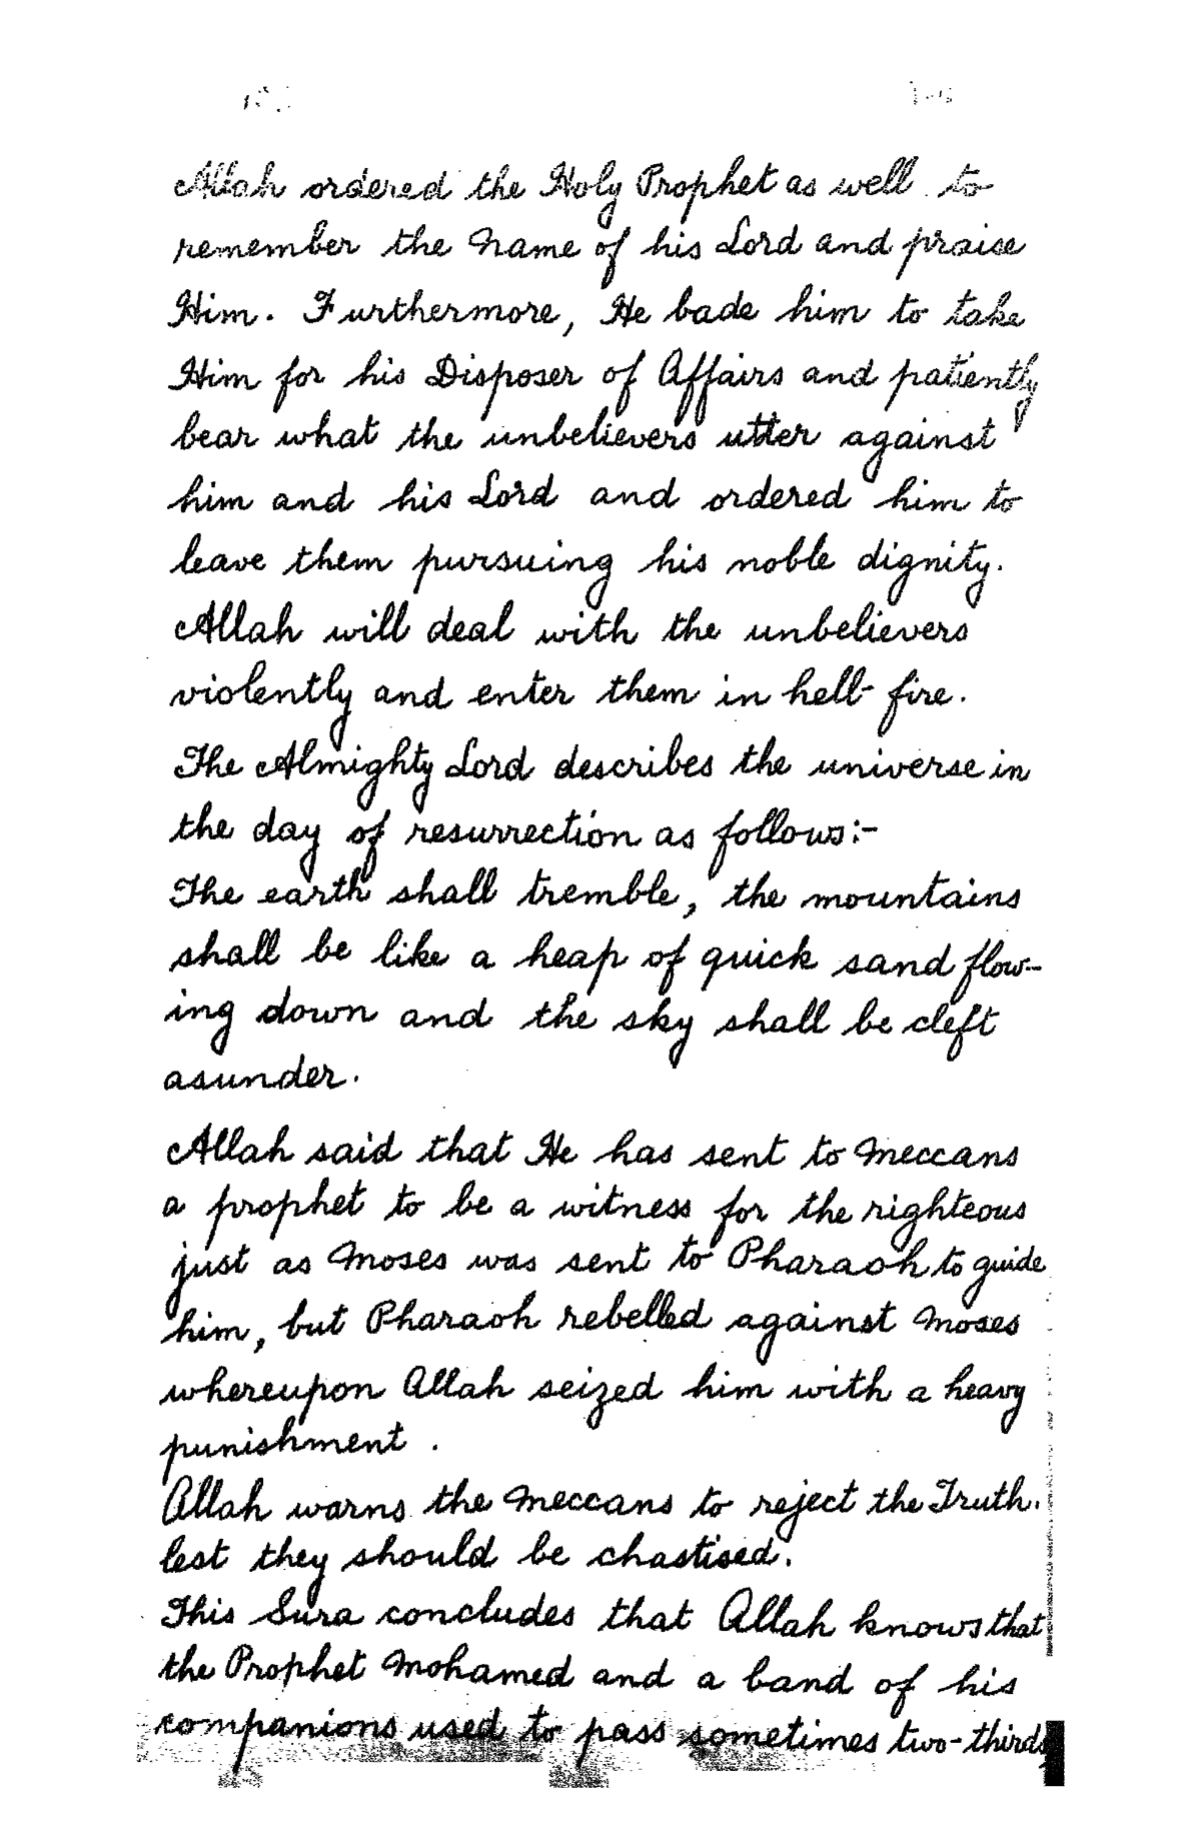 Allah ordered the Holy Prophet as well to
remember the Name of his Lord and praise
Him. Furthermore, He bade him to take
Him for his Disposer of Affairs and patiently
bear what the unbelievers utter against
him and his Lord and ordered him to
leave them pursuing his noble dignity.
Allah will deal with the unbelievers
violently and enter them in hell-fire.
The Almighty Lord describes the universe in
the day of resurrection as follows:-
The earth shall tremble, the mountains
shall be like a heap of quick sand flow-
ing down and the sky shall be cleft
asunder.
Allah said that He has sent to Meccans
a prophet to be a witness for the righteous
just as Moses was sent to Pharaoh to guide
him, but Pharaoh rebelled against Moses
whereupon Allah seized him with a heavy
punishment.
Allah warns the Meccans to reject the Truth.
lest they should be chastised.
This Sura concludes that Allah knows that
the Prophet Mohamed and a band of his
companions used to pass sometimes two-thirds